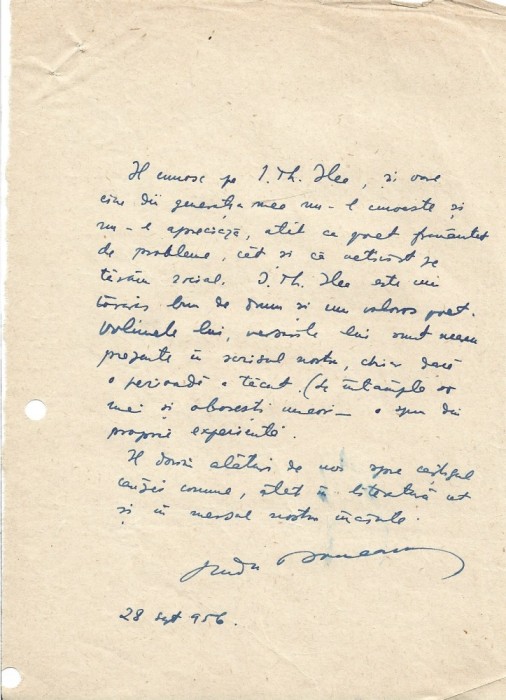 Îl cunosc pe I. Th. Ilea, și oare
cine din generația mea nu-l cunoaște și
nu-l apreciază, atît ca poet frămîntat
de probleme, cît și ca activist pe
tărîm social. I. Th. Ilea este un
tovarăș bun de drum si un valoros poet.
Volumele lui, versurile lui sunt
prezente în scrisul nostru, chiar dacă
o perioadă a tăcut (se întâmplă să
mai și obosești uneori — o spun din
proprie experiență.
Îl dorim alături de noi spre cîștigul
cauzei comune, atît în literatură cît
și în mersul nostru înainte.
28 sept 956.